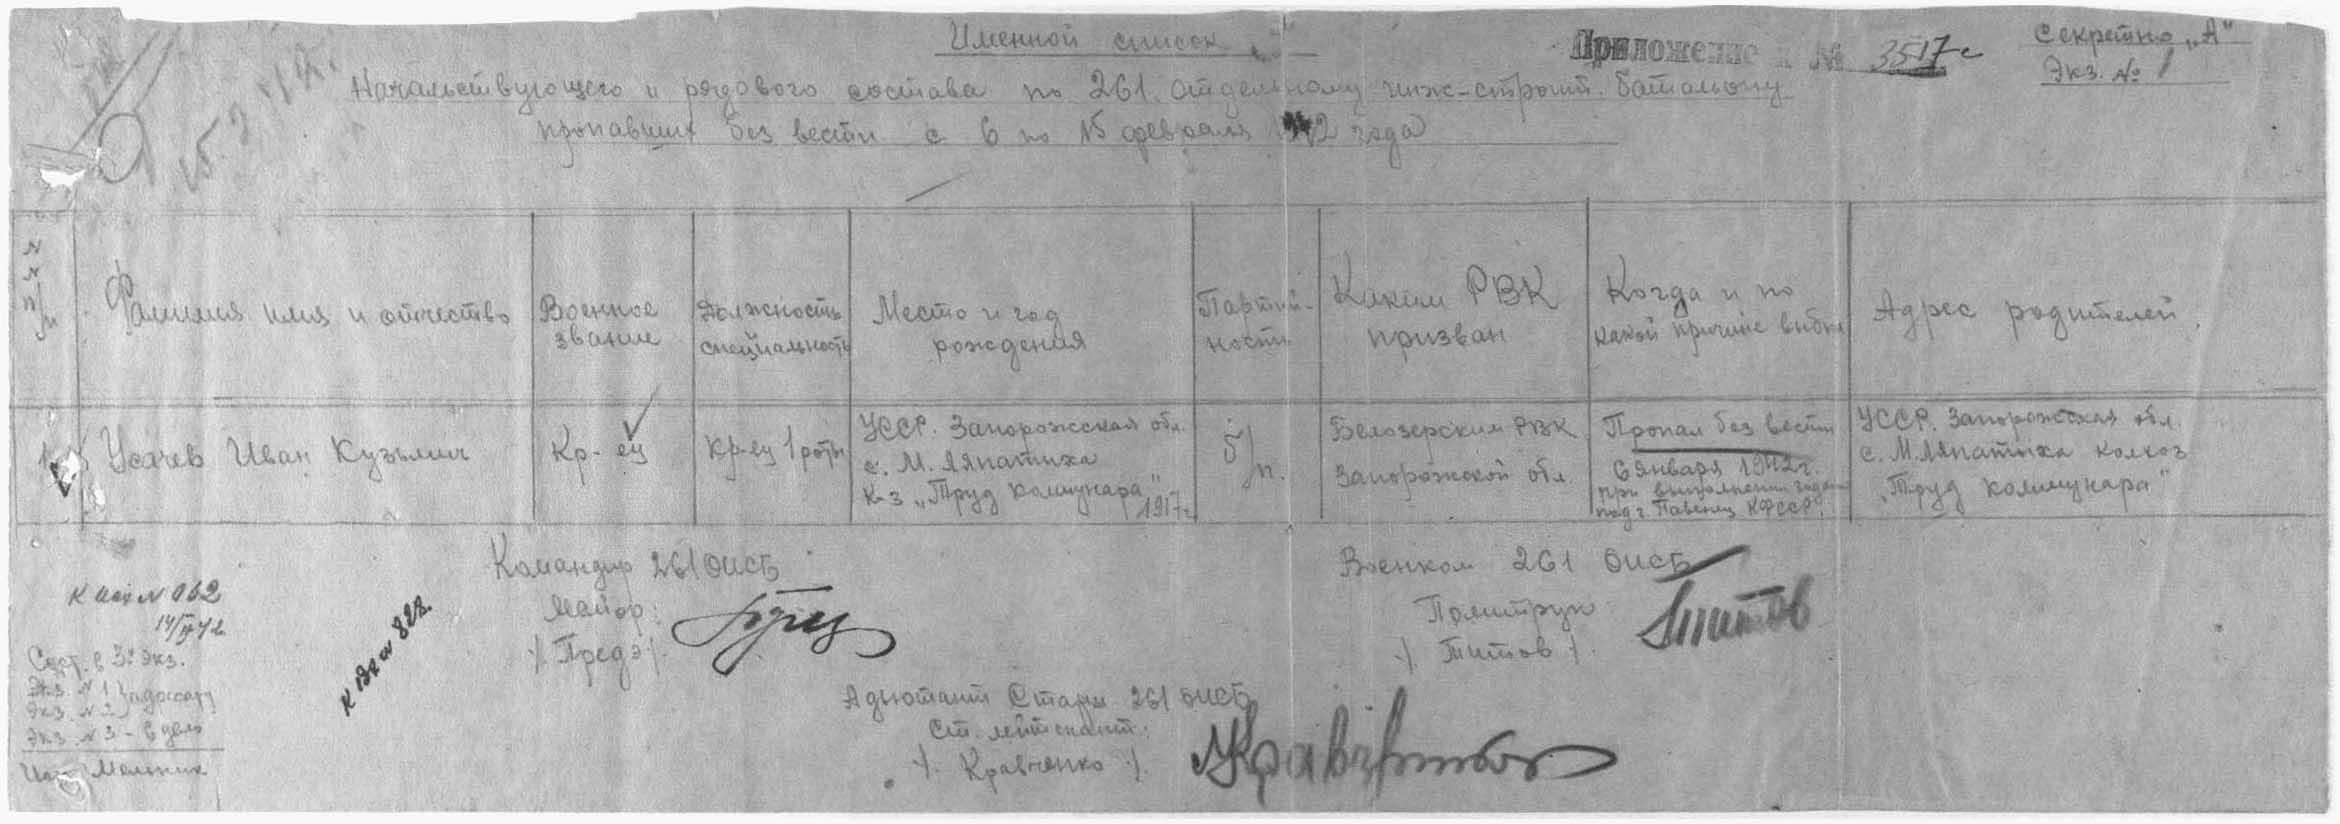 Именной список
Приложение к № 3517с
Секретно „А"
Экз. № 1
Начальствующего и рядового состава по 261 отдельному инж-строит. батальону
пропавших без вести с 6 по 15 февраля 1942 года
Фамилия имя и отчество
Военное
звание
Должность
специальность
Место и год
рождения
Партий-
ность
Каким РВК
призван
Когда и по
какой причине выбыл
Адрес родителей.
Усачев Иван Кузьмич
Кр-ец
Кр-ец 1 роты
УССР. Запорожская обл.
с. М. Ляпатиха
к-з „Труд коммунара"
1917г
б/п.
Белозерским РВК
Запорожской обл.
Пропал без вести
6 января 1942 г.
при выполнении задан
под г. Повенец КФССР.
УССР. Запорожская обл.
с. М. Ляпатиха колхоз
„Труд коммунара"
Командир 261 ОИСБ
Майор:
/. Предэ /.
Военком 261 ОИСБ
Политрук
/. Титов /.
Титов
Адъютант Старш 261 ОИСБ
Ст. лейтенант:
/. Кравченко /.
Кравченко
К исх № 062
Сост. в 3х экз.
Экз. № 1
Экз. № 2
Экз. № 3 - в дело
Исп. Мельник